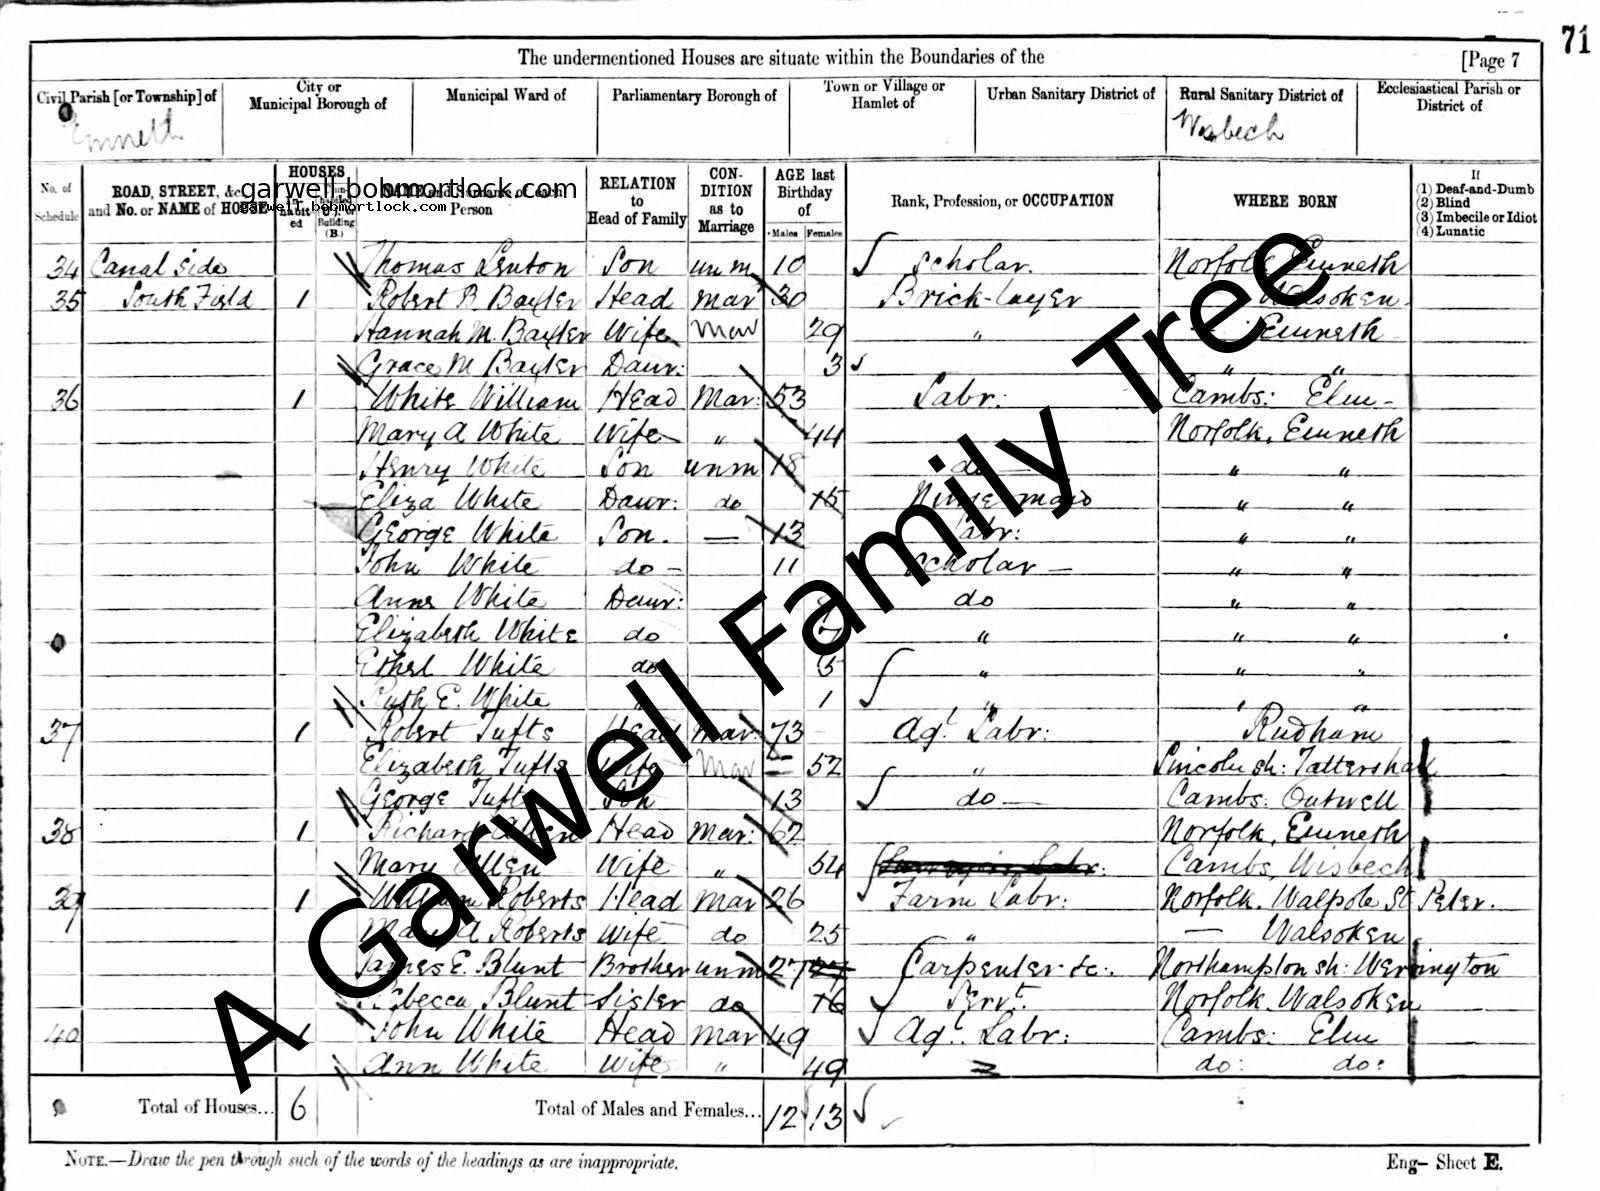 71
The undermentioned Houses are situate within the Boundaries of the [Page 7
Civil Parish [or Township] of
Emneth
City or Municipal Borough of
Municipal Ward of
Parliamentary Borough of
Town or Village or Hamlet of
Urban Sanitary District of
Rural Sanitary District of
Wisbech
Ecclesiastical Parish or District of
No. of Schedule
ROAD, STREET, &c. and No. or NAME of HOUSE
HOUSES
garwell.bobmortlock.com
garwell.bobmortlock.com
NAME and Surname of each Person
RELATION to Head of Family
CONDITION as to Marriage
AGE last Birthday of
Males Females
Rank, Profession, or OCCUPATION
WHERE BORN
If
(1) Deaf-and-Dumb
(2) Blind
(3) Imbecile or Idiot
(4) Lunatic
34 Canal Side Thomas Lenton Son unm 10 Scholar. Norfolk Emneth
35 South Field 1 Robert B Baxter Head Mar 30 Brick-layer Walsoken
Hannah M. Baxter Wife Mar 29 " Emneth
Grace M Baxter Daur: 3 " "
36 1 White William Head Mar: 53 Labr: Cambs: Elm -
Mary A White Wife " 44 Norfolk, Emneth
Henry White Son unm 18 do " "
Eliza White Daur: do 15 " "
George White Son. — 13 Labr: " "
John White do - 11 Scholar — " "
Anne White Daur: do " "
Elizabeth White do 7 " " "
Ethel White do 5 " " "
Ruth E. White 1 " "
37 1 Robert Tufts Head Mar: 73 Agl Labr: Rudham
Elizabeth Tufts Wife Mar 52 " Lincolnsh: Tattershall
George Tufts Son 13 do — Cambs: Outwell
38 1 Richard Allen Head Mar: 62 Norfolk, Emneth
Mary Allen Wife " 54 Cambs, Wisbech
39 1 William Roberts Head Mar 26 Farm Labr: Norfolk. Walpole St Peter.
Mary A Roberts Wife do 25 " — Walsoken
James E. Blunt Brother unm 27 Carpenter &c. Northamptonsh: Werrington
Rebecca Blunt Sister do 16 Servt. Norfolk Walsoken
40 1 John White Head Mar 49 Agl. Labr: Cambs: Elm
Ann White Wife " 49 do: do:
Total of Houses... 6 Total of Males and Females... 12 13
NOTE.—Draw the pen through such of the words of the headings as are inappropriate.
Eng— Sheet E.
A Garwell Family Tree